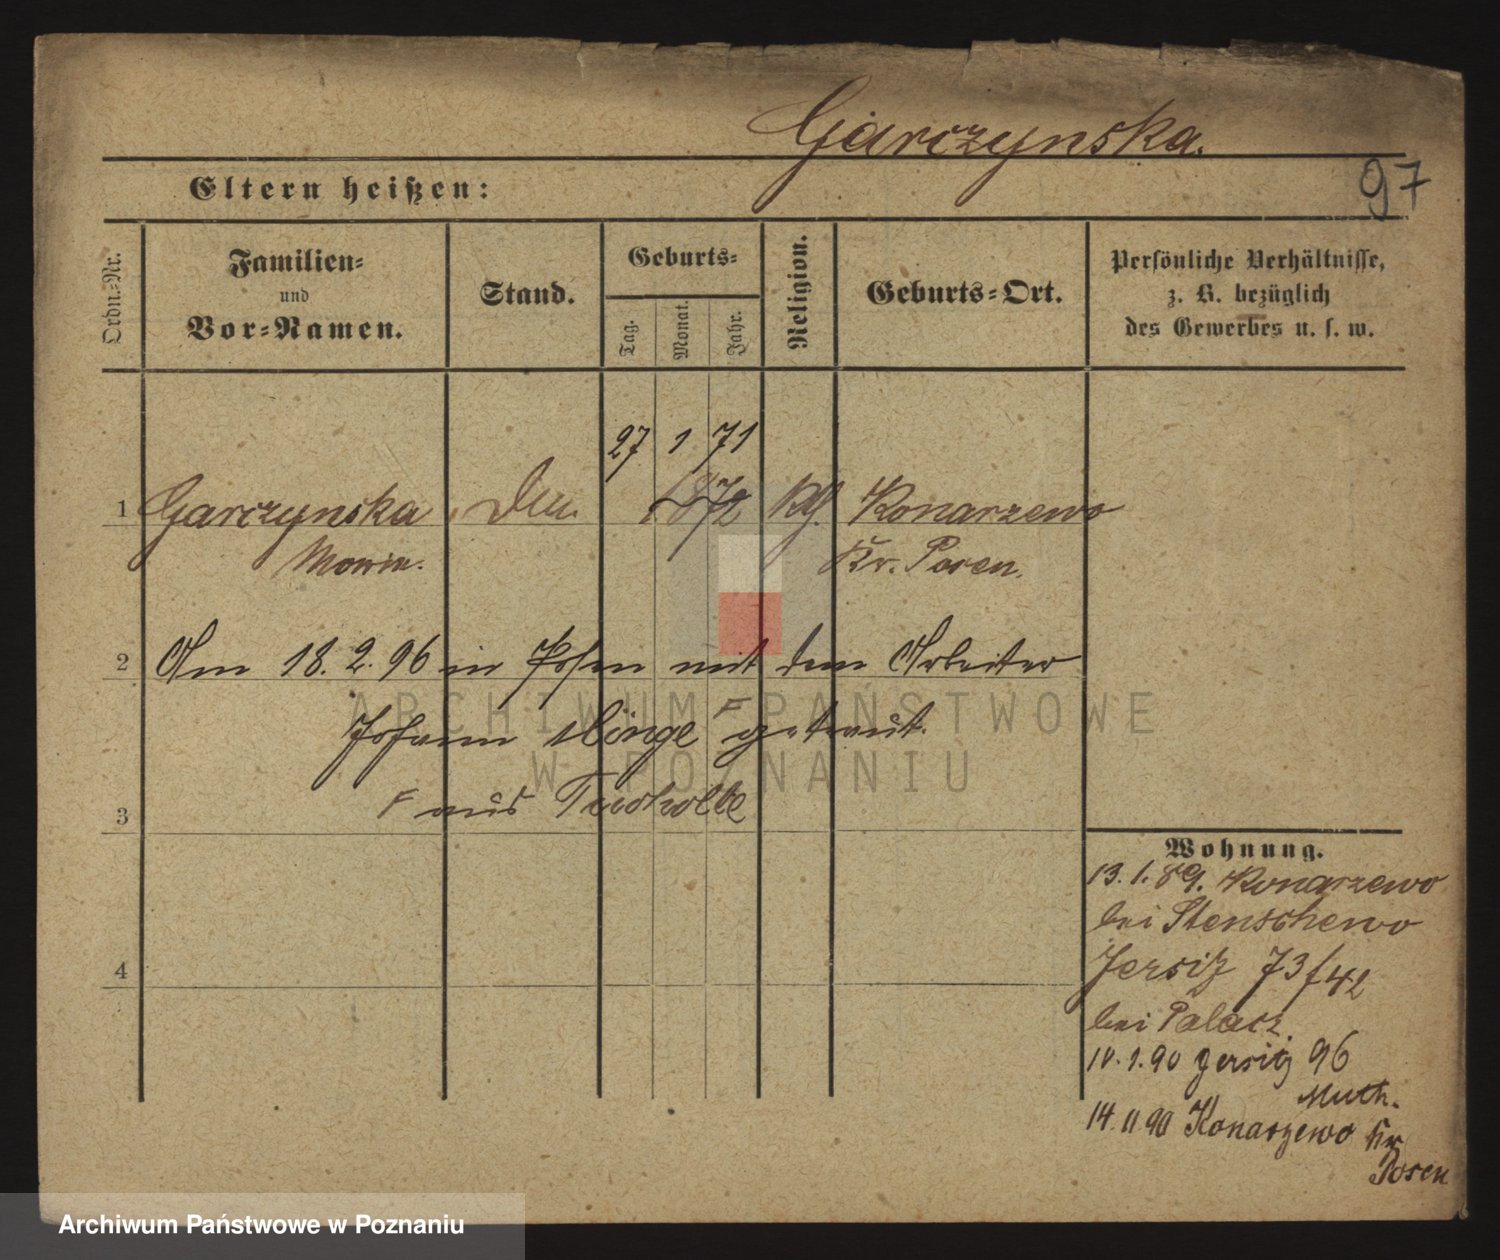 Garczynska.
97
Eltern heißen:
Ordn.-Nr.
Familien-
und
Vor-Namen.
Stand.
Geburts-
Tag.
Monat.
Jahr.
Religion.
Geburts-Ort.
Persönliche Verhältnisse,
z. B. bezüglich
des Gewerbes u. s. w.
27 1 71
1 Garczynska 1872 Konarzewo
Kr. Posen.
2 Am 18. 2. 96 in Posen mit dem Arbeiter
Johann getraut.
3 F aus
4
Wohnung.
13. 1. 89. Konarzewo
bei Stenschewo
Jersitz 73/42
bei Palacz.
1.90 Jersitz 96
Muth.
14.11.90 Konarzewo Kr
Posen
ARCHIWUM PAŃSTWOWE
W POZNANIU
Archiwum Państwowe w Poznaniu